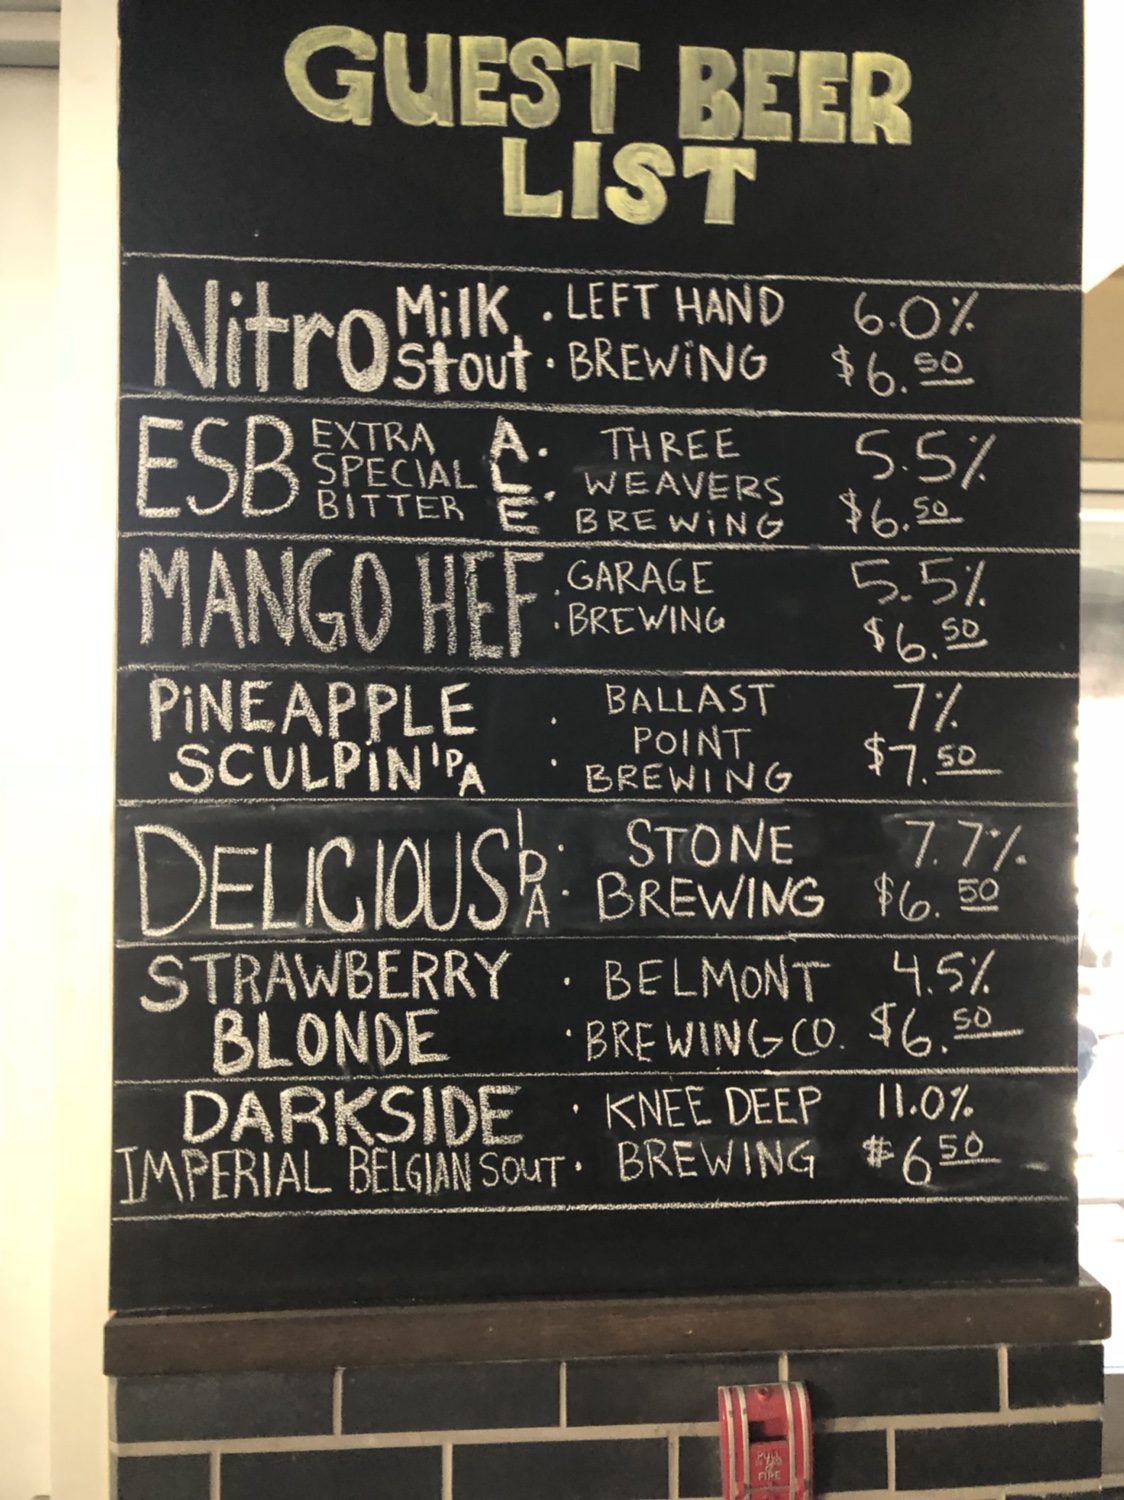 GUEST BEER
LIST
Nitro Milk Stout · LEFT HAND BREWiNG 6.0% $6.50
ESB EXTRA SPECIAL BITTER A.L.E · THREE WEAVERS BREWiNG 5.5% $6.50
MANGO HEF · GARAGE BREWING 5.5% $6.50
PiNEAPPLE SCULPiN IPA · BALLAST POINT BREWING 7% $7.50
DELICIOUS IPA · STONE BREWING 7.7% $6.50
STRAWBERRY BLONDE · BELMONT BREWING CO. 4.5% $6.50
DARKSIDE IMPERIAL BELGIAN SOUT · KNEE DEEP BREWING 11.0% $6 50
PULL
FIRE